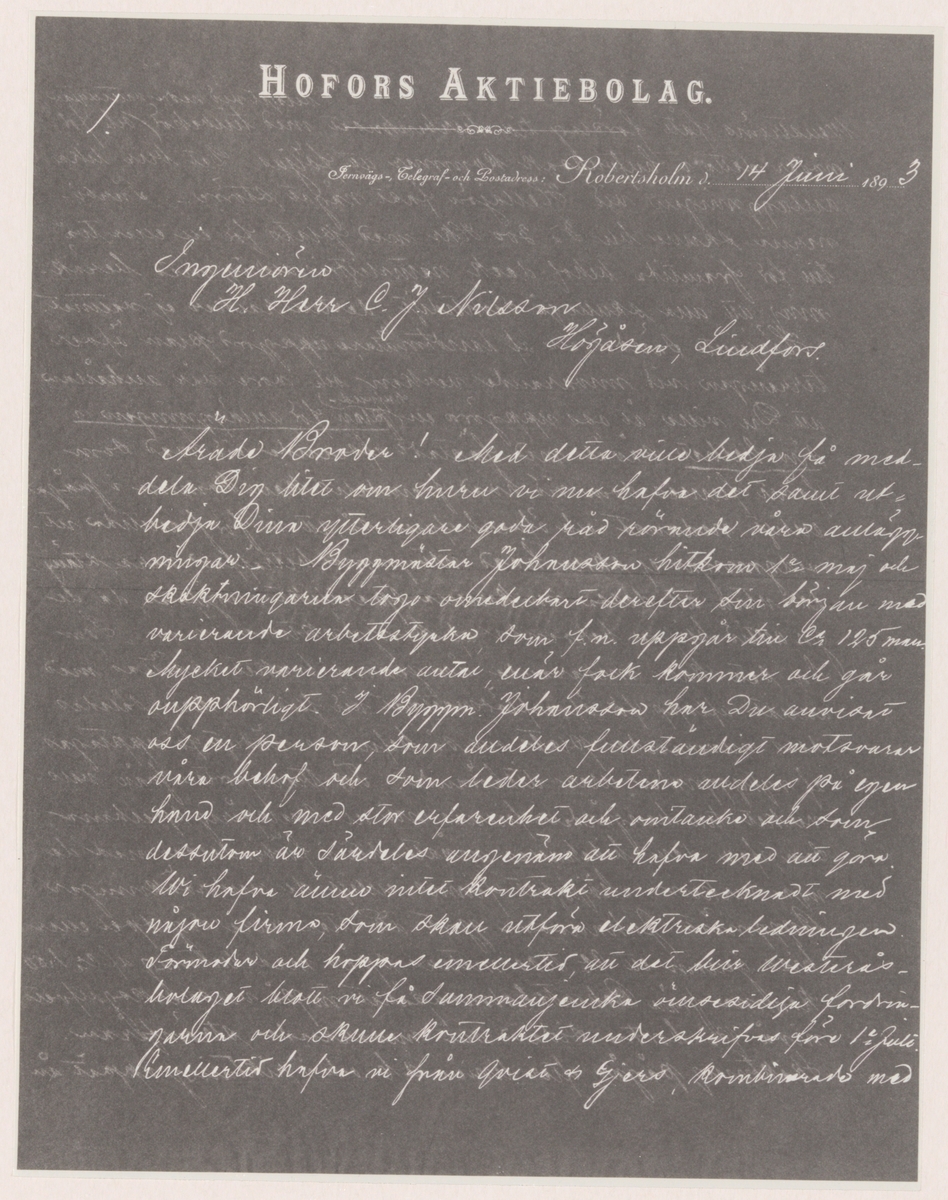 HOFORS AKTIEBOLAG.
1.
Jernvägs-, Telegraf- och Postadress: Robertsholm d. 14 Juni 1893
Ingeniören
H. Herr C. J. Nilsson
Högåsen, Lindfors.
Ärade Broder! Med detta ville bedja få med-
dela Dig litet om huru vi nu hafva det samt ut-
bedja Dina ytterligare goda råd rörande våra anlägg-
ningar. - Byggmästar Johansson hitkom 1e maj och
skaktningarna togo omedelbart derefter sin början med
varierande arbetsstyrka som f.n. uppgår till Ca 125 man
Mycket varierande antal enär folk kommer och går
oupphörligt. I Byggm. Johansson har Du anvisat
oss en person, som alldeles fullständigt motsvarar
våra behof och som leder arbetena alldeles på egen
hand och med stor erfarenhet och omtanke och som
dessutom är särdeles angenäm att hafva med att göra.
Vi hafva ännu intet kontrakt undertecknadt med
någon firma, som skall utföra elektriska ledningen
Förmodar och hoppas emellertid, att det blir Westerås-
bolaget blott vi få sammanjemka ömsesidiga fordrin-
garna och skulle kontraktet underskrifvas före 1e Juli.
Emellertid hafva vi från Qvist & Gjers, kombinerade med